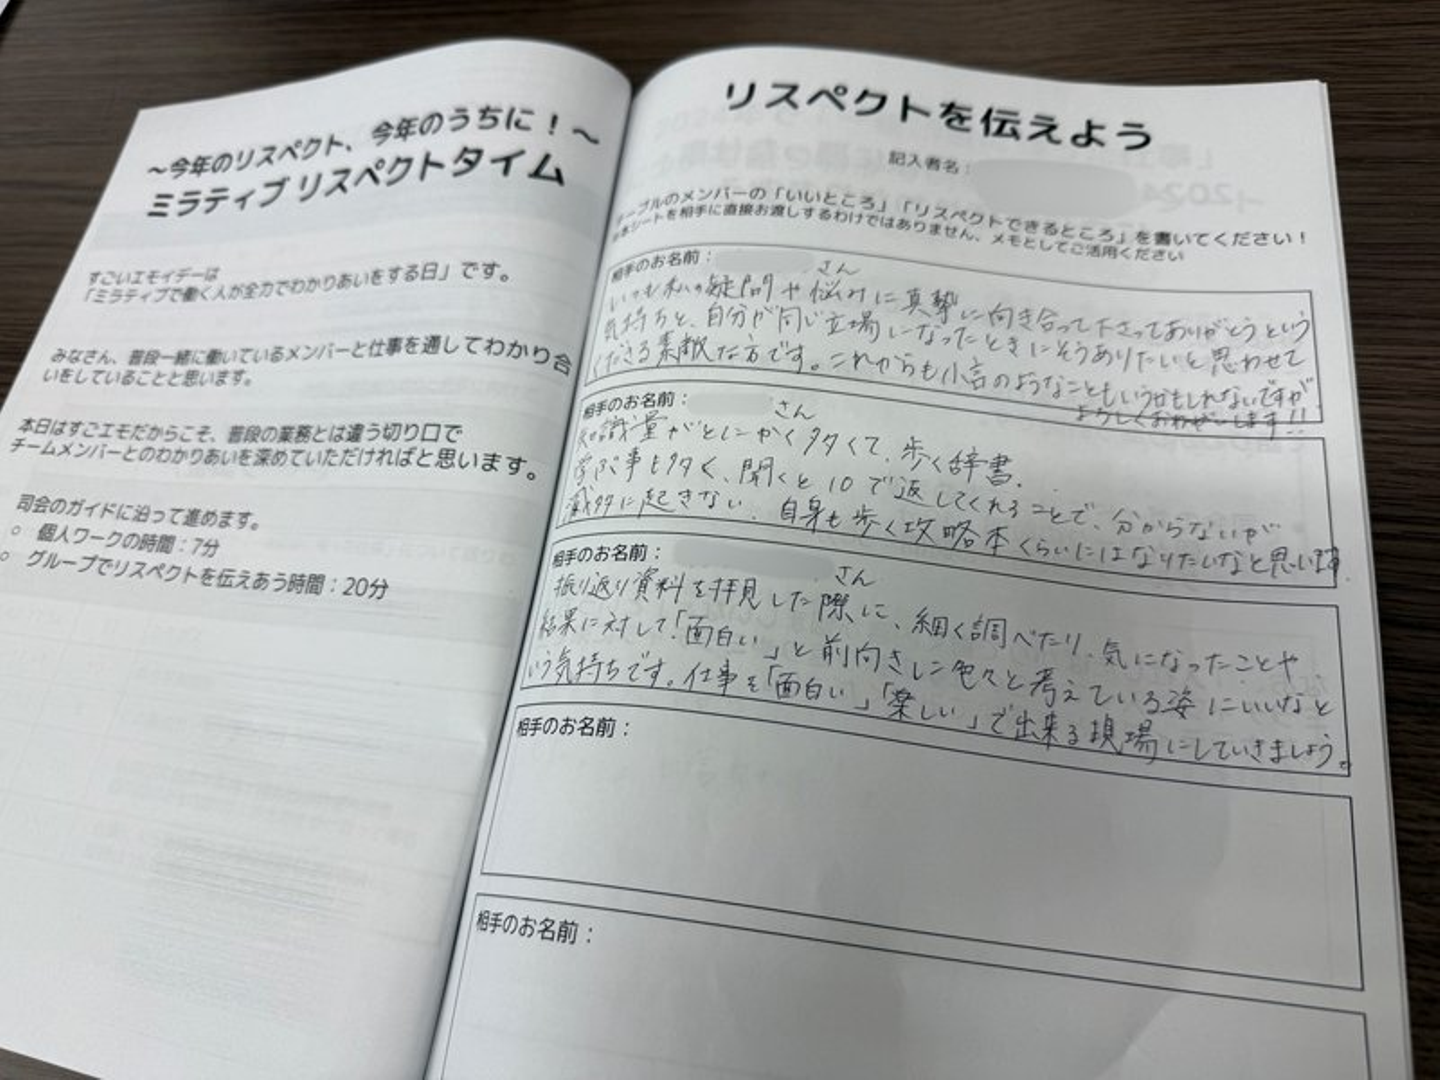 ～今年のリスペクト、今年のうちに！～
ミラティブ リスペクトタイム
すごいエモイデーは
「ミラティブで働く人が全力でわかりあいをする日」です。
みなさん、普段一緒に働いているメンバーと仕事を通してわかり合
いをしていることと思います。
本日はすごエモだからこそ、普段の業務とは違う切り口で
チームメンバーとのわかりあいを深めていただければと思います。
司会のガイドに沿って進めます。
○ 個人ワークの時間：7分
○ グループでリスペクトを伝えあう時間：20分
リスペクトを伝えよう
記入者名：
テーブルのメンバーの「いいところ」「リスペクトできるところ」を書いてください！
※本シートを相手に直接お渡しするわけではありません、メモとしてご活用ください
相手のお名前： さん
いつも私の疑問や悩みに真摯に向き合って下さってありがとうという
気持ちと、自分が同じ立場になったときにそうありたいと思わせて
くださる素敵な方です。これからも小言のようなこともいうかもしれないですが
よろしくおねがいします!!
相手のお名前： さん
知識量がとにかく多くて、歩く辞書.
学ぶ事も多く、聞くと10で返してくれることで、分からないが
滅多に起きない. 自身も歩く攻略本くらいにはなりたいなと思います.
相手のお名前： さん
振り返り資料を拝見した際に、細く調べたり、気になったことや
結果に対して「面白い」と前向きに色々と考えている姿にいいなと
いう気持ちです。仕事を「面白い」「楽しい」で出来る現場にしていきましょう。
相手のお名前：
相手のお名前：